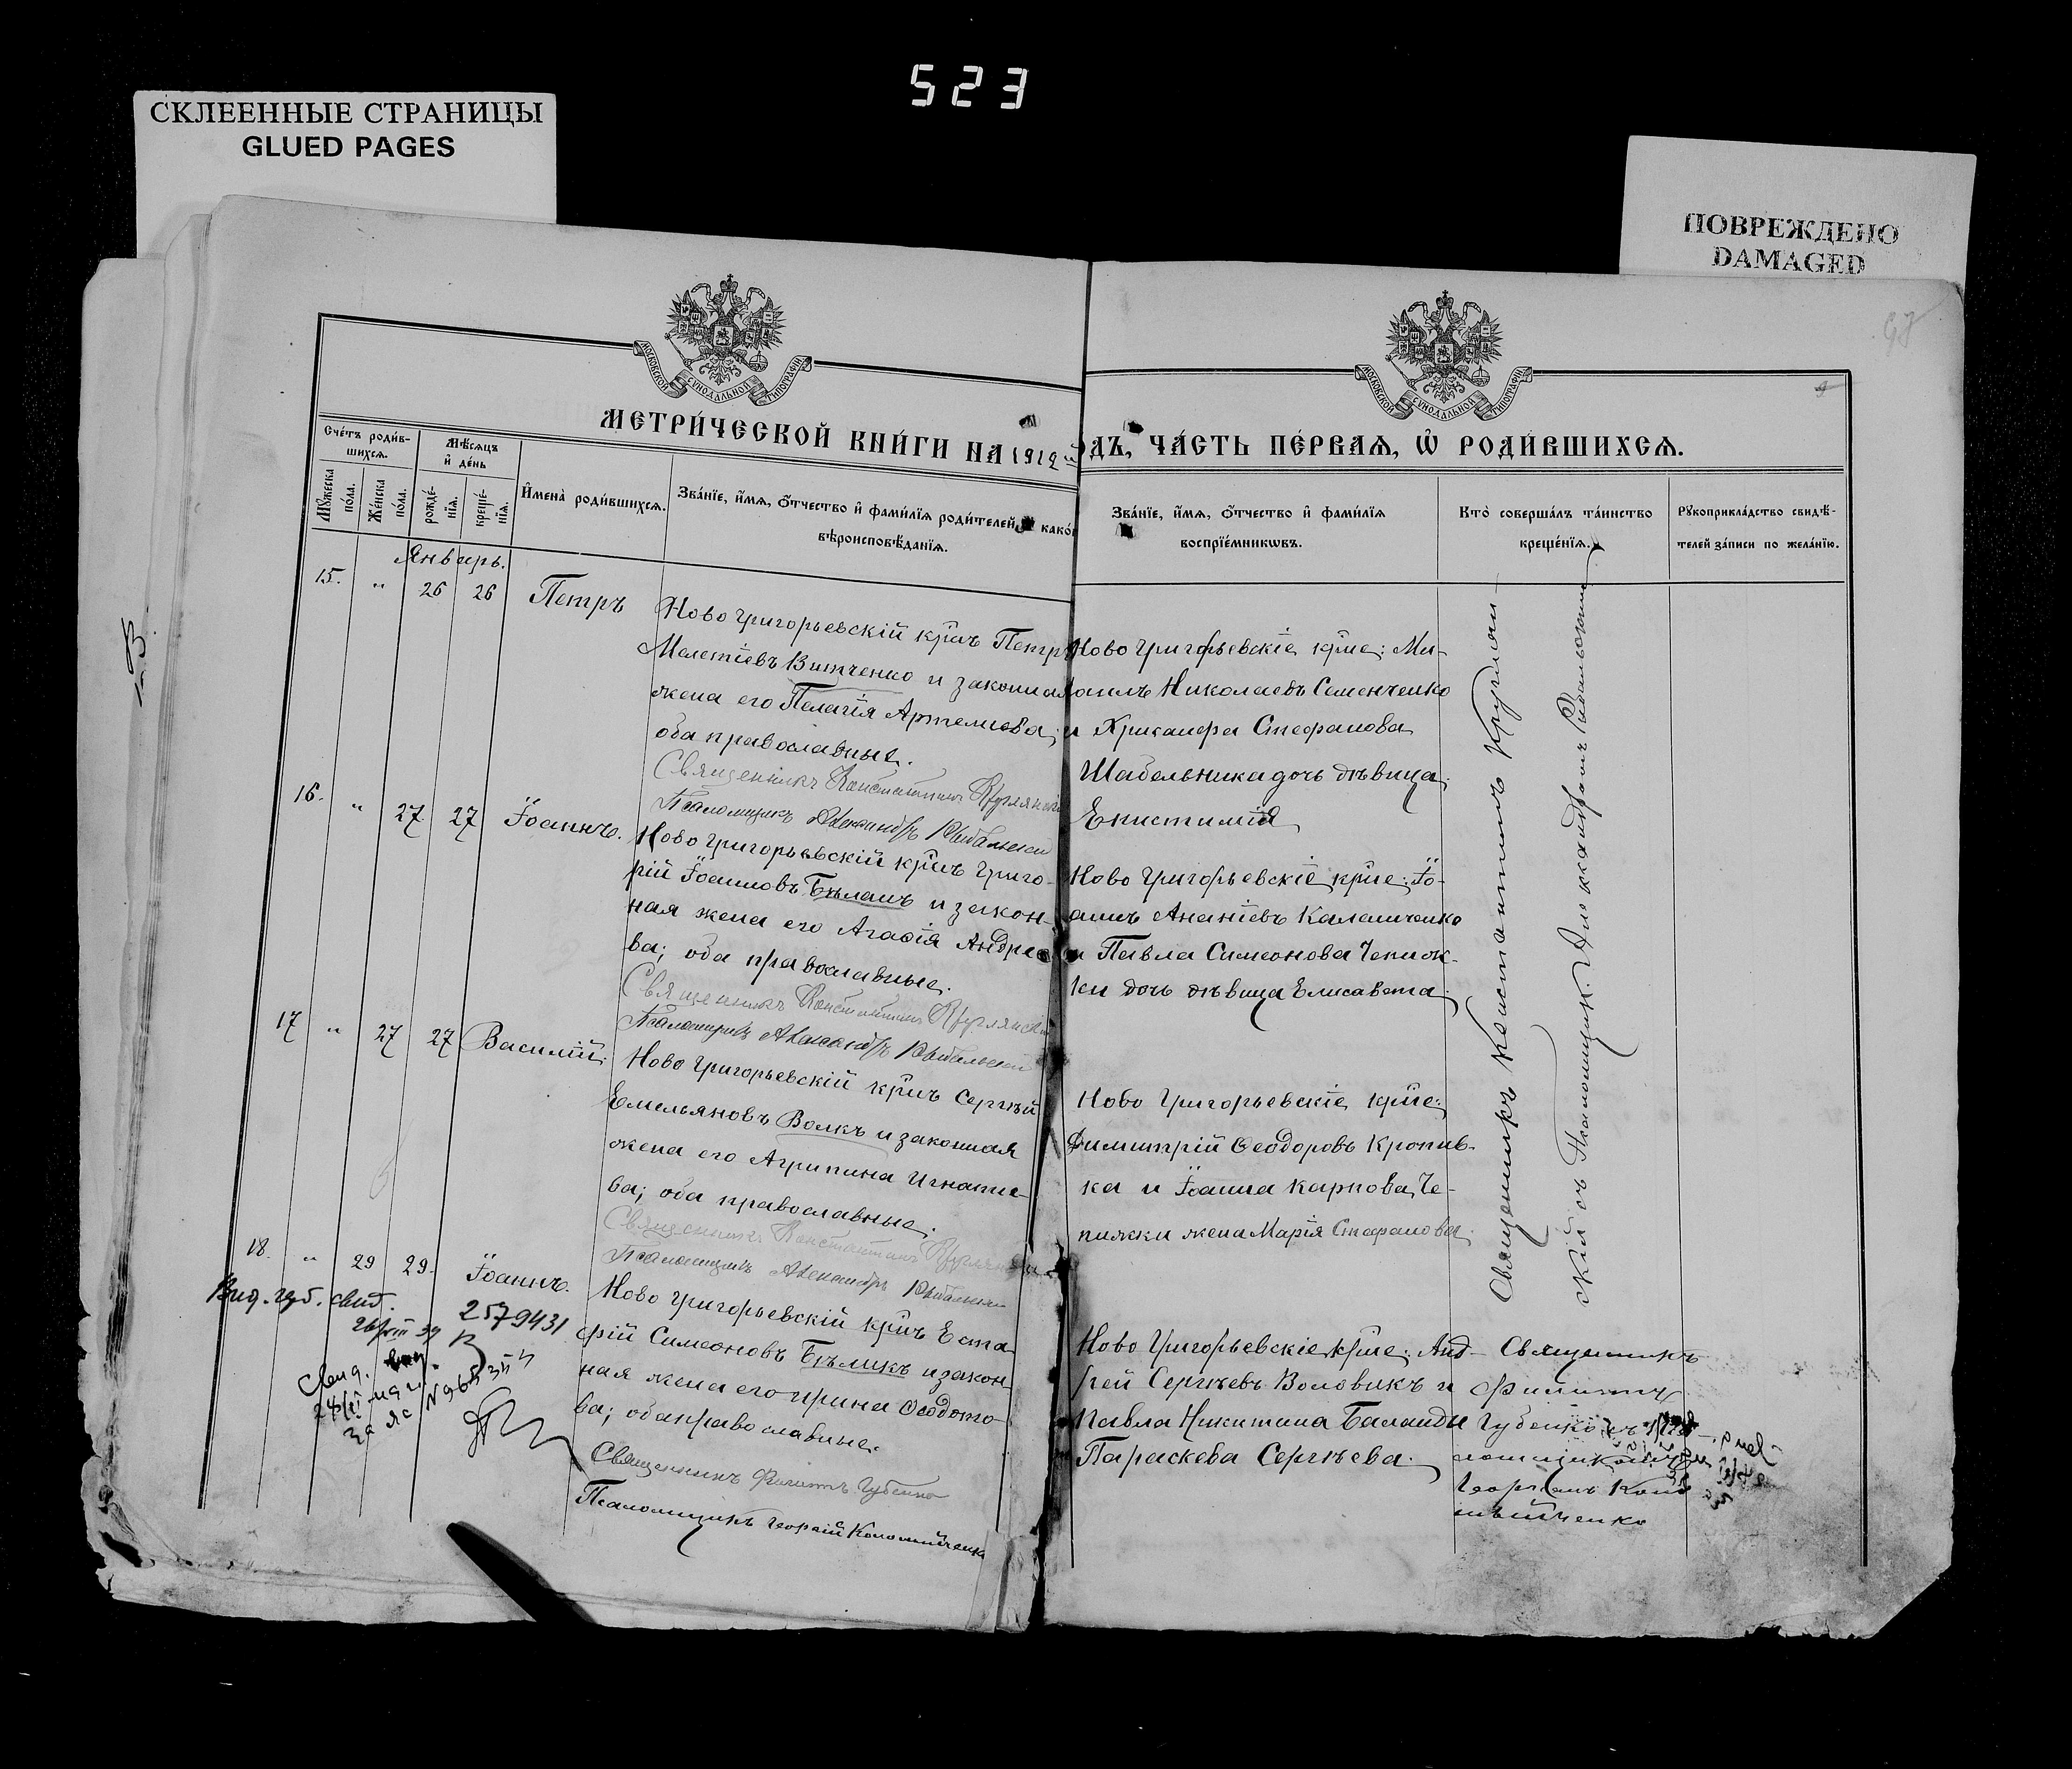 523
СКЛЕЕННЫЕ СТРАНИЦЫ
GLUED PAGES
ПОВРЕЖДЕНО
DAMAGED
МОСКОВСКОЙ СѴНОДАЛЬНОЙ ТИПОГРАФІИ
МОСКОВСКОЙ СѴНОДАЛЬНОЙ ТИПОГРАФІИ
МЕТРИ́ЧЕСКОЙ КНИ́ГИ НА 1912
ДЪ, ЧА́СТЬ ПЕ́РВАЯ, Ѡ РОДИ́ВШИХСЯ.
Сче́тъ роди́в-
шихся.
Мѣ́сяцъ
и де́нь
Мꙋ́жеска
по́ла.
Же́нска
по́ла.
рожде́-
нїя.
креще́-
нїя.
Имена̀ роди́вшихся.
Зва́нїе, и́мя, о́тчество и фами́лїя роди́телей, како́
вѣроисповѣ́данїя.
Зва́нїе, и́мя, о́тчество и фами́лїя
воспрїе́мникωвъ.
Кто̀ соверша́лъ та́инство
креще́нїя.
Рꙋкоприкла́дство свидѣ́-
телей за́писи по жела́нїю.
Январь.
15. " 26 26 Петръ
Ново Григорьевскій крнъ Петръ
Мелетіевъ Витченко и законная
жена его Пелагія Артемиева;
оба православные.
Священникъ Константинъ Круглянскій
Псаломщикъ Александръ Рыбальскій
Ново Григорьевскіе крне: Ми-
хаилъ Николаевъ Семенченко
и Хрисанфа Стефанова
Шабельника дочь дѣвица
Епистимія
16. " 27 27 Іоаннъ.
Ново Григорьевскій крнъ Григо-
рій Іоанновъ Бѣланъ и закон-
ная жена его Агафія Андрее-
ва; оба православные.
Священникъ Константинъ Круглянскій
Псаломщикъ Александръ Рыбальскій
Ново Григорьевскіе крне: Іо-
аннъ Ананіевъ Калашченко
и Павла Симеонова Чепиж-
ки дочь дѣвица Елисавета.
17 " 27 27 Василій.
Ново Григорьевскій крнъ Сергѣй
Емельяновъ Волкъ и законная
жена его Агрипина Игнатіе-
ва; оба православные.
Священникъ Константинъ Круглянскій
Псаломщикъ Александръ Рыбальскій
Ново Григорьевскіе крне:
Димитрій Ѳеодоровъ Кропив-
ка и Іоанна Карпова Че-
пижки жена Марія Стефанова.
Священникъ Константинъ Круглян-
скій съ Псаломщик. Александромъ Рыбальскимъ
18. " 29 29. Іоаннъ.
Ново Григорьевскій крнъ Еста-
фій Симеоновъ Бѣликъ и закон
ная жена его Ирина Ѳеодото-
ва; оба православные.
Священникъ Филиппъ Губенко
Псаломщикъ Георгій Коломійченко
Ново Григорьевскіе крне: Анд-
рей Сергѣевъ Воловикъ и
Павла Никитина Баланды
Параскева Сергѣева.
Священникъ
Филиппъ
Губенко съ
Георгіемъ
2579431